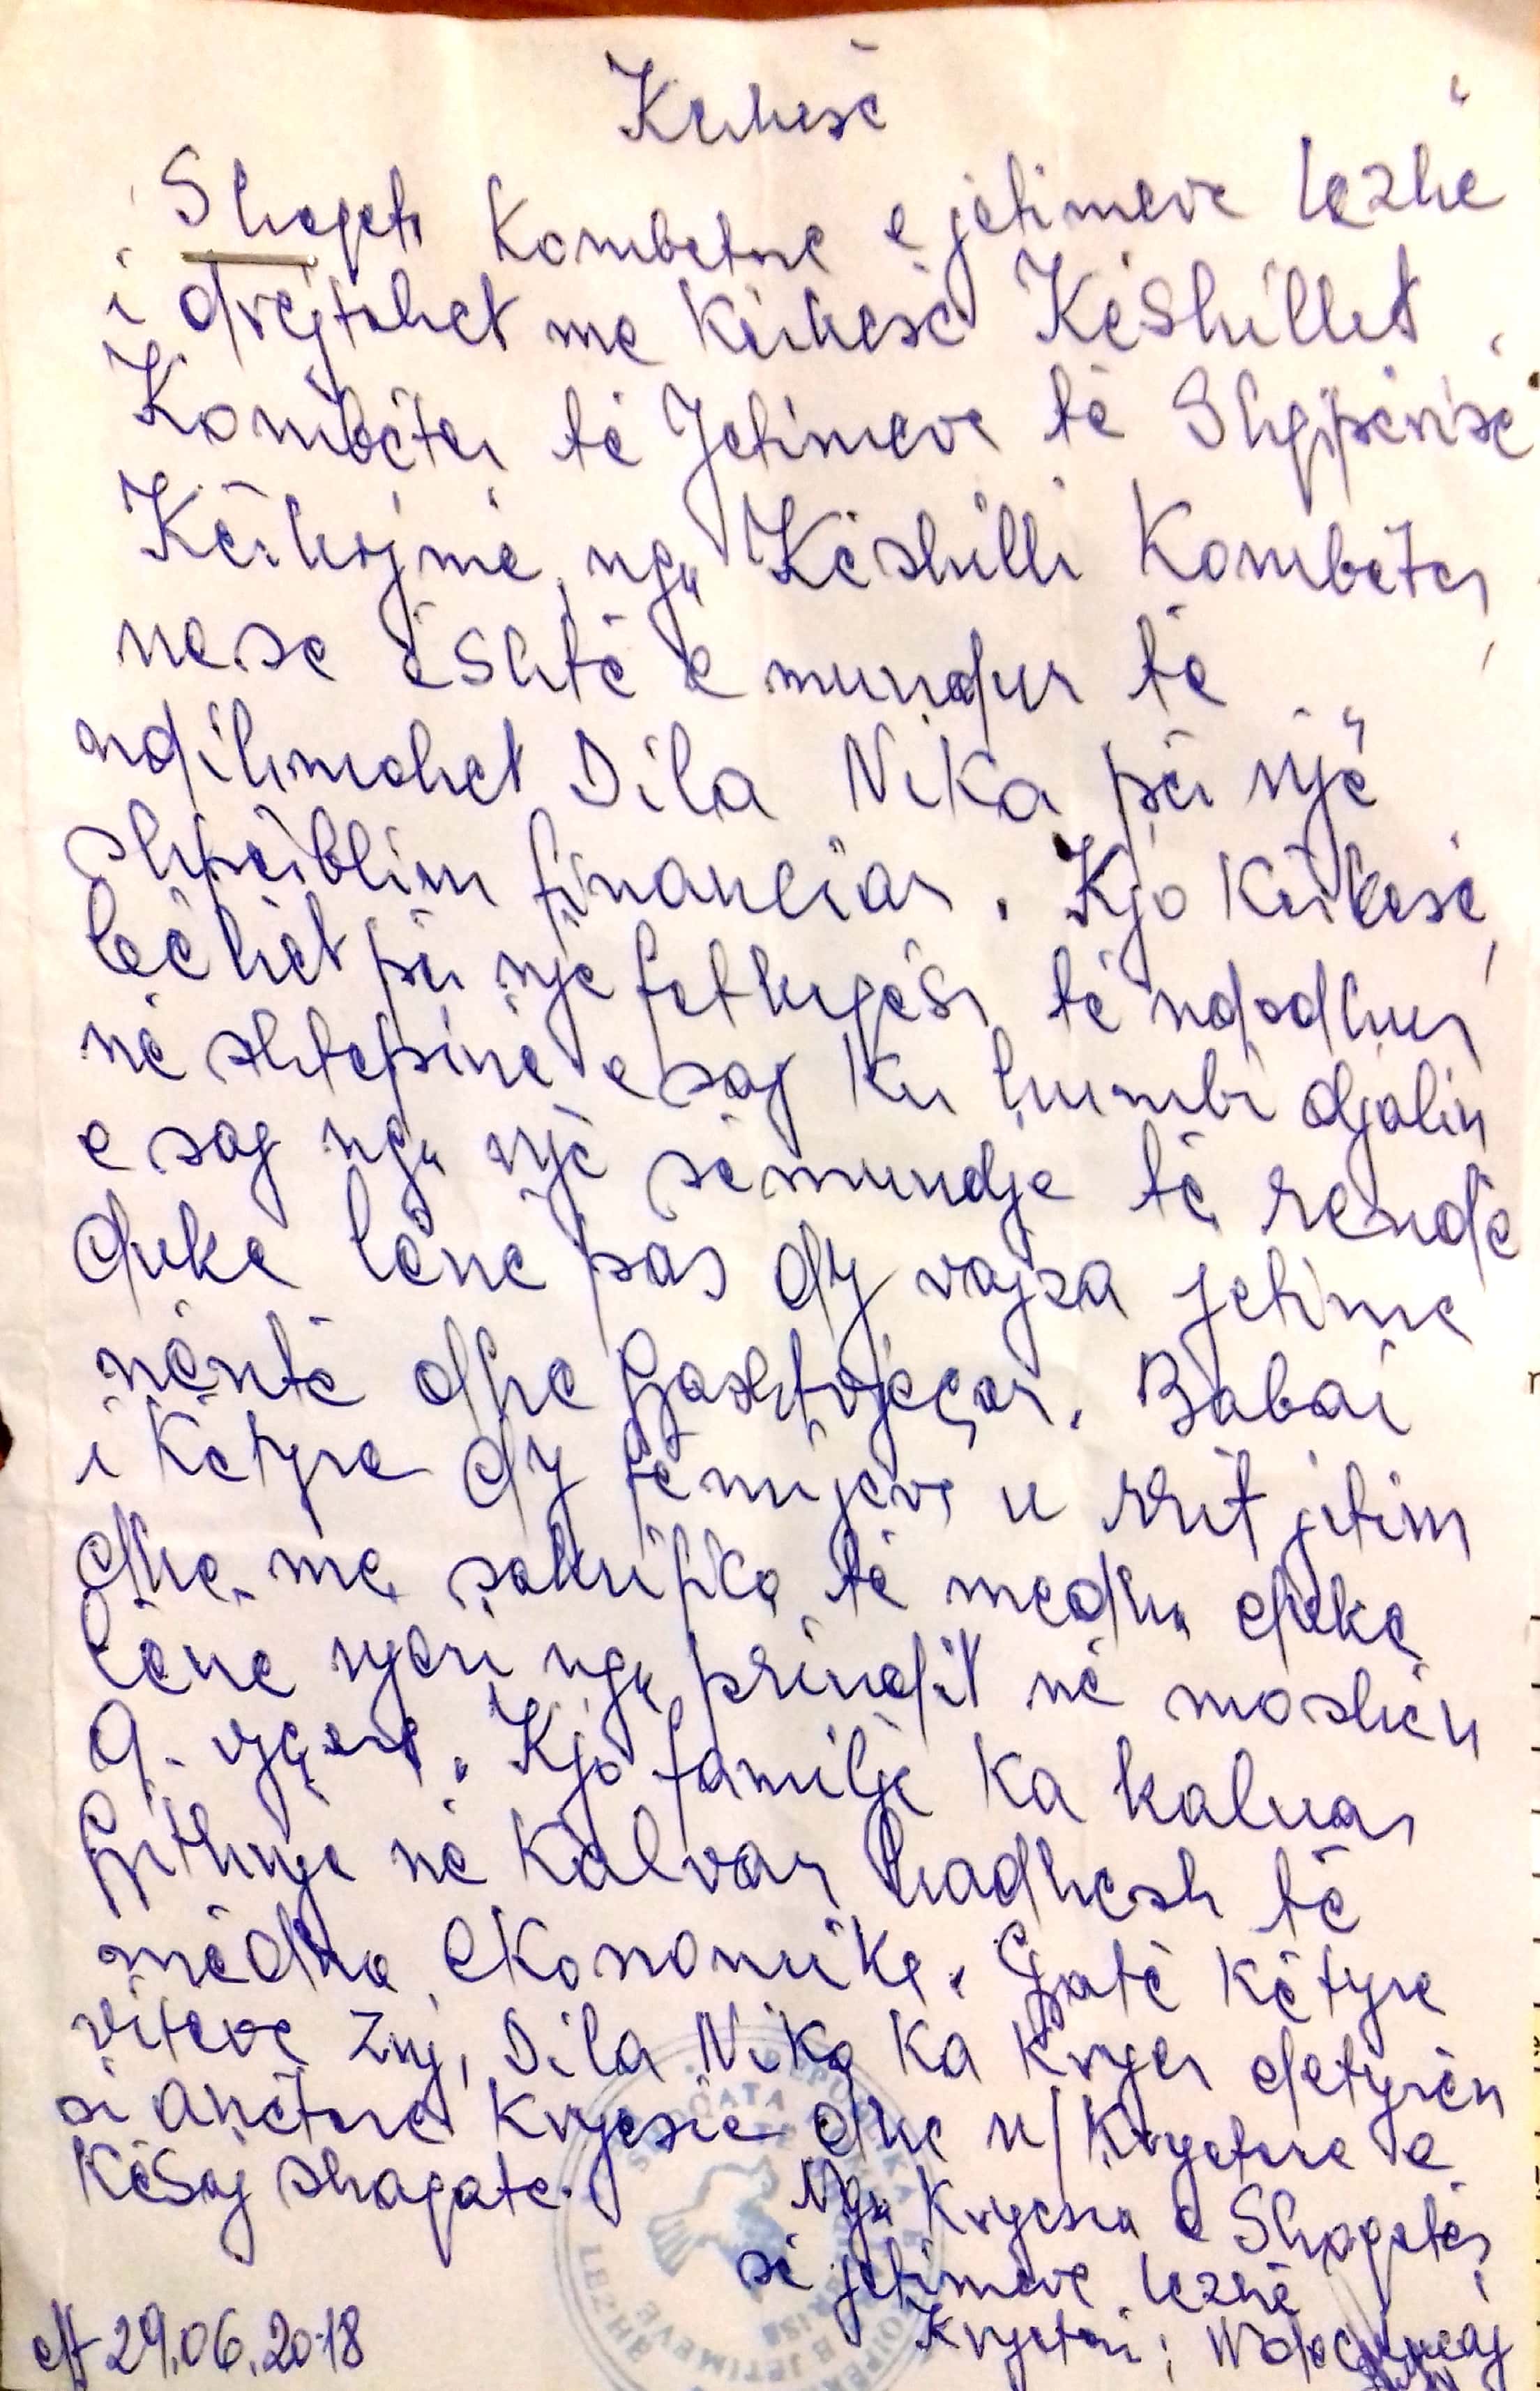 Kërkesë
Shoqata Kombëtare e jetimeve Lezhë
i drejtohet me kërkesë Këshillit
Kombëtar të Jetimeve të Shqipërisë
Kërkojmë nga Këshilli Kombëtar
nese është e mundur të
ndihmohet Dila Nika për një
shpërblim financiar. Kjo kërkesë
lëshet për një fatkeqësi të ndodhur
në shtëpinë e saj ku humbi djalin
e saj nga një sëmundje të rëndë
duke lënë pas dy vajza jetime
nëntë dhe gjashtvjeçar. Babai
i këtyre dy fëmijëve u rrit jetim
dhe me sakrifica të mëdha duke
lënë njeri nga prindit në moshën
9-vjçare. Kjo familje ka kaluar
gjithnjë në kalvar halldhesh të
mëdha ekonomike. Gjatë këtyre
viteve Znj, Dila Nika ka kryer detyrën
si anëtare kryesie dhe n/kryetare e
kësaj shoqate.
Nga Kryesia e Shoqatës
së jetimeve Lezhë
Kryetari:
dt 29.06.2018
SHOQATA
E JETIMEVE
LEZHË